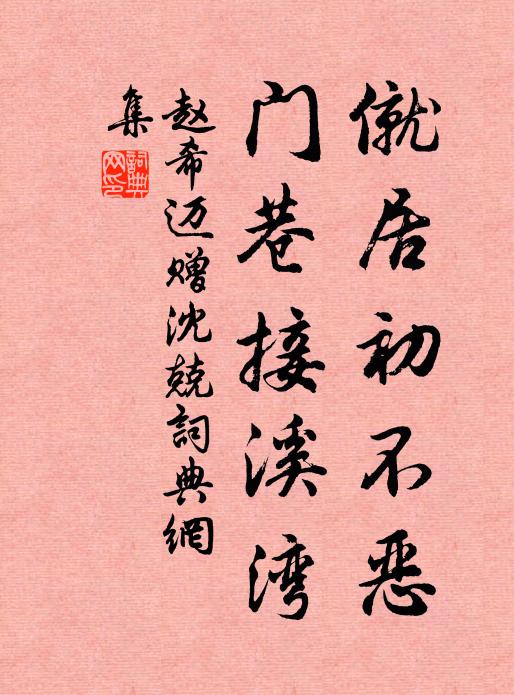 僦居初不恶
门巷接溪湾
赵希迈赠沈兢詞典網
集
詞典網印